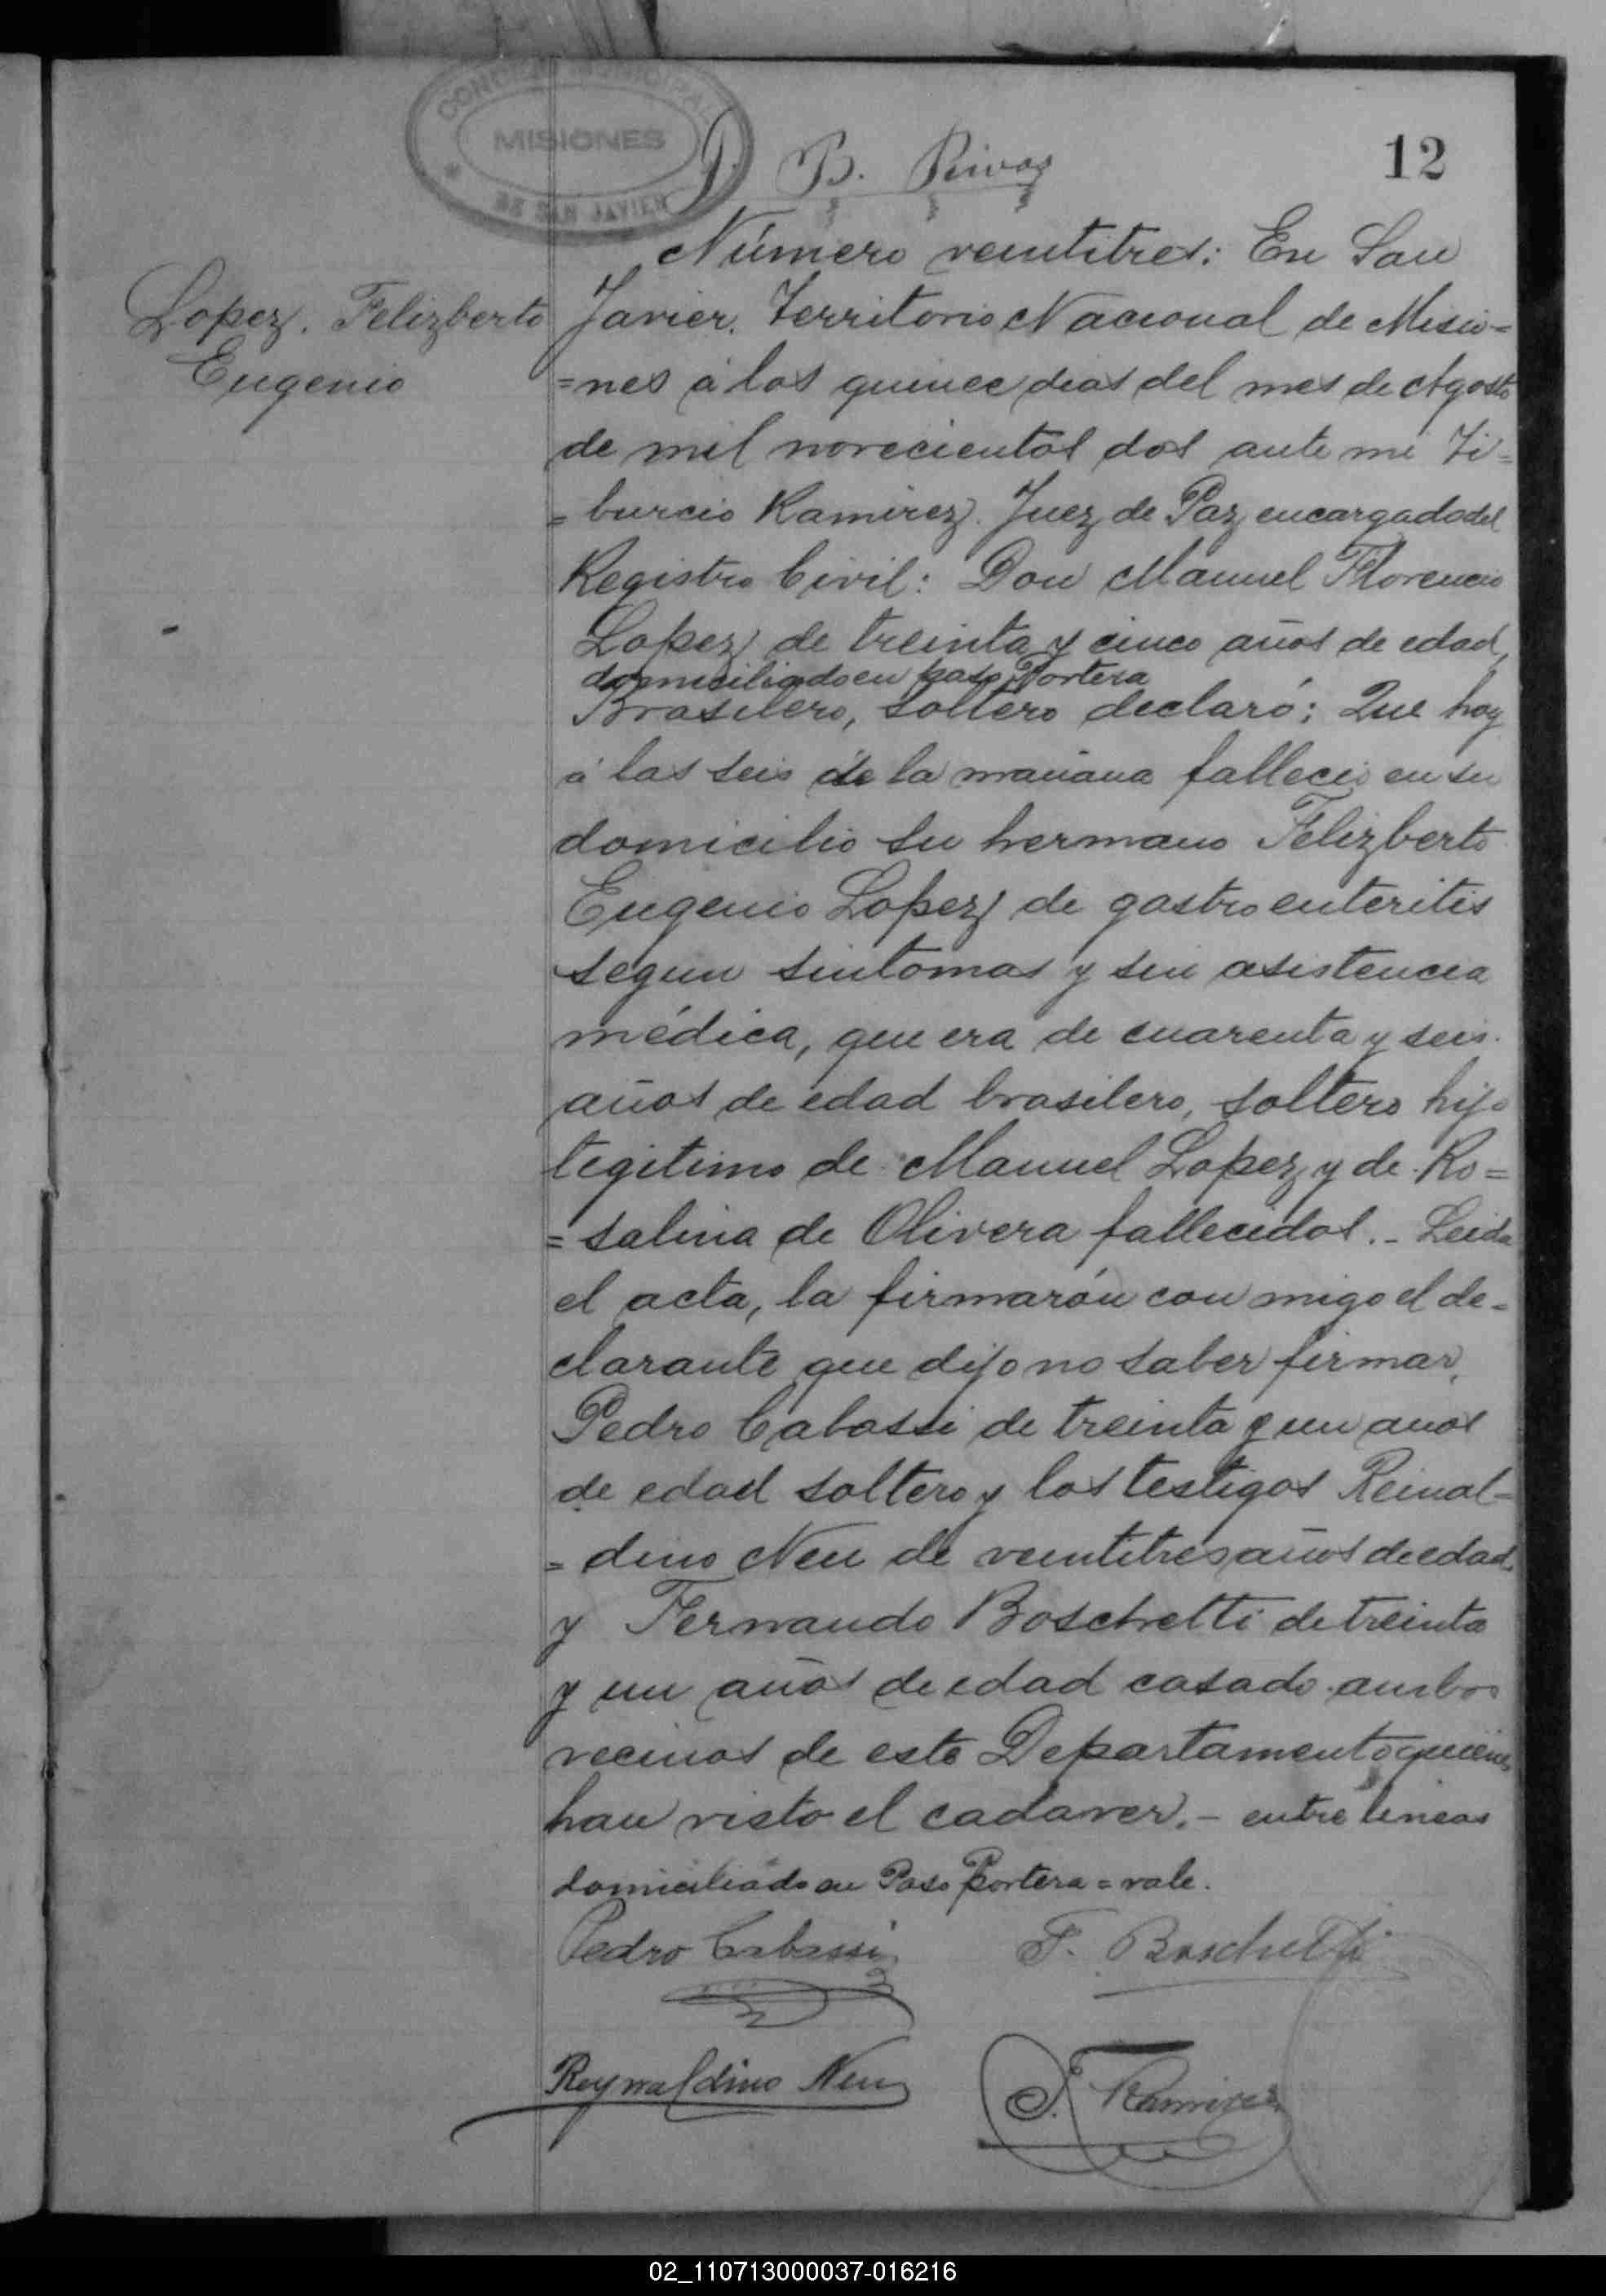 CONCEJO MUNICIPAL
MISIONES
DE SAN JAVIER
J. B. Rivas
12
Lopez. Felizberto
Eugenio
Número veintitres: En San
Javier. Territorio Nacional de Misio=
=nes á los quince dias del mes de Agosto
de mil novecientos dos ante mi Ti=
=burcio Ramirez. Juez de Paz encargado del
Registro Civil: Don Manuel Florencio
Lopez de treinta y cinco años de edad,
domiciliado en paso Portera
Brasilero, soltero declaró: Que hoy
á las seis de la mañana falleció en su
domicilio su hermano Felizberto
Eugenio Lopez de gastro enteritis
segun sintomas y sin asistencia
médica, que era de cuarenta y seis
años de edad brasilero, soltero hijo
legitimo de Manuel Lopez y de Ro=
=salina de Olivera fallecidos.- Leida
el acta, la firmarón con migo el de=
clarante que dijo no saber firmar,
Pedro Cabassi de treinta y un años
de edad soltero y los testigos Reinal=
=dino Neu de veintitres años de edad
y Fernando Boschetti de treinta
y un años de edad casado ambos
vecinos de este Departamento quienes
han visto el cadaver.- entre lineas
domiciliado en Paso Portera = vale.
Pedro Cabassi
F. Boschetti
Reynaldino Neu
T. Ramirez
02_110713000037-016216